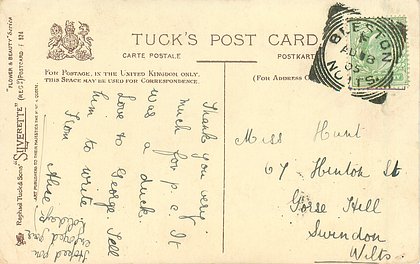 TUCK'S POST CARD
CARTE POSTALE
POSTKARTE
FOR POSTAGE, IN THE UNITED KINGDOM ONLY,
THIS SPACE MAY BE USED FOR CORRESPONDENCE.
(FOR ADDRESS
BEESTON
AU 18
05
NOTTS
"FLOWER & BEAUTY" SERIES
Raphael Tuck & Sons' "SILVERETTE" (REGD) POSTCARD
ART PUBLISHERS TO THEIR MAJESTIES THE
Thank you very
much for p.c. It
was a duck.
Love to George Tell
him to write
from Alice
enjoyed your
holidays
Miss Hunt
67 Hinton St
Gorse Hill
Swindon
Wilts